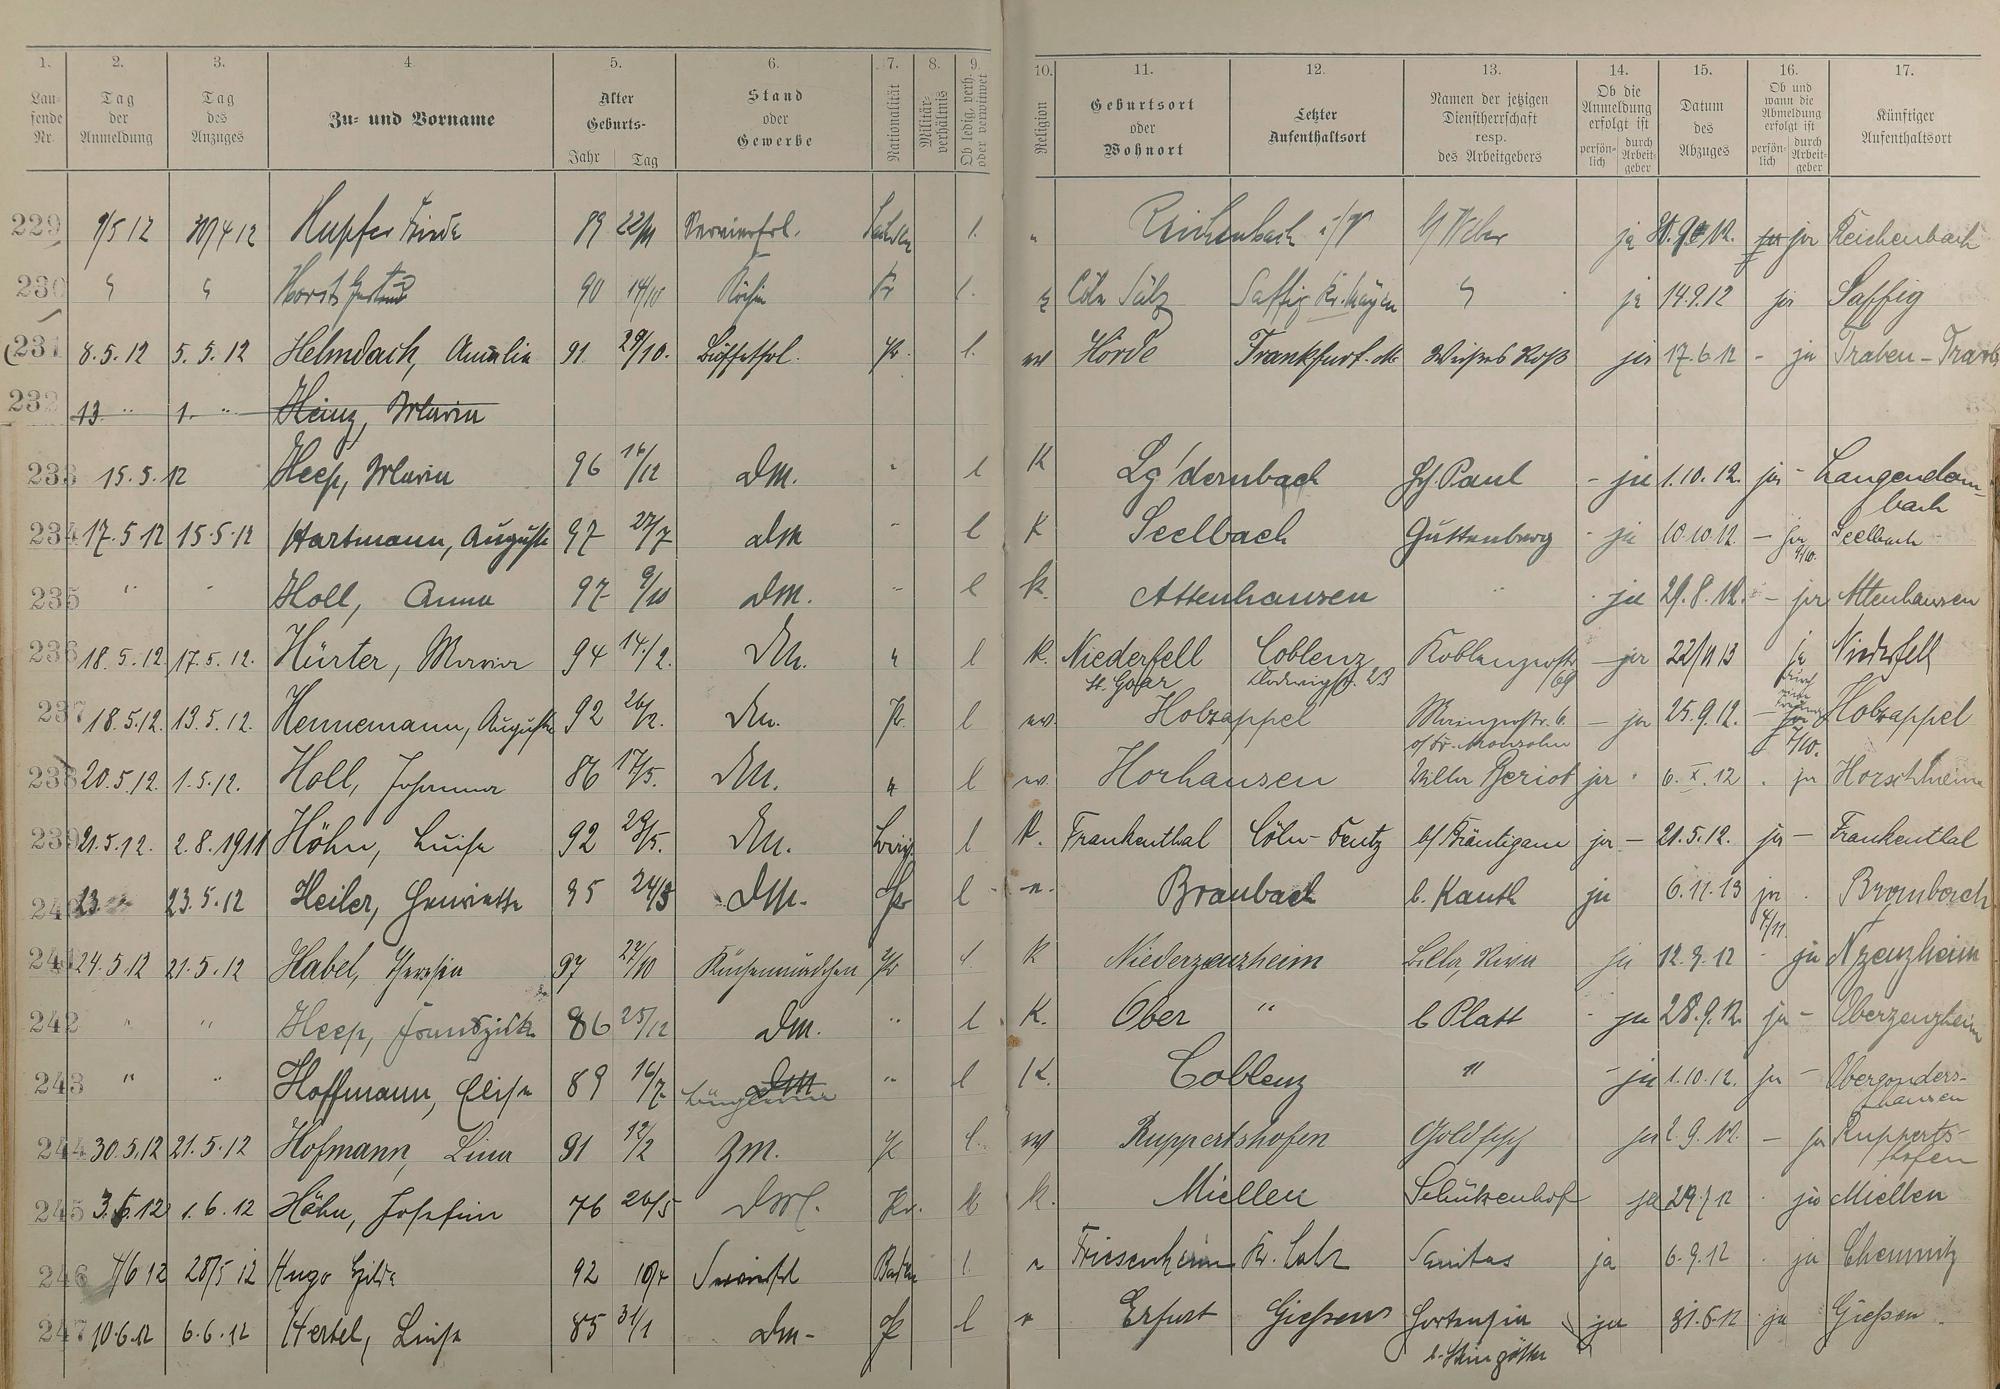 1. 2. 3. 4 5. 6. 7. 8. 9. 10. 11. 12. 13. 14. 15. 16. 17.
Lau-
fende
Nr.
Tag
der
Anmeldung
Tag
des
Anzuges
Zu- und Vorname
Alter
Geburts-
Jahr Tag
Stand
oder
Gewerbe
Nationalität
Militär-
verhältnis
Ob ledig, verh.
oder verwitwet
Religion
Geburtsort
oder
Wohnort
Letzter
Aufenthaltsort
Namen der jetzigen
Dienstherrschaft
resp.
des Arbeitgebers
Ob die
Anmeldung
erfolgt ist
persön-
lich
durch
Arbeit-
geber
Datum
des
Abzuges
Ob und
wann die
Abmeldung
erfolgt ist
persön-
lich
durch
Arbeit-
geber
Künftiger
Aufenthaltsort
229 9/5 12 30/4 12 Hupfer Frieda 89 Servierfrl. Sachsen l. " Reichenbach i/V ja ja Reichenbach
230 " " Horst Gertrud 90 14/10 Köchin Pr l. k Cöln Sülz Saffig Kr. Mayen " ja 14.9.12 ja Saffig
231 8.5.12 5.5.12 Helmdach, Amalia 91 29/10. Büffetfrl. Pr. l. ev Hörde Frankfurt a/M Weißes Roß ja 17.6.12 - ja Traben-Trarb
232 13 " 1. " Heinz, Maria
233 15.5.12 Heep, Maria 96 16/12 DM. " l K Lg'dernbach Paul - ja 1.10.12. ja - Langendern-
bach
234 17.5.12 15.5.12 Hartmann, Auguste 97 27/7 DM " l K Seelbach Guttenberg - ja 10.10.12 - ja Seelbach
9/10.
235 " " Holl, Anna 97 9/10 DM. " l k. Attenhausen " - ja 29.8.12. - ja Attenhausen
236 18.5.12. 17.5.12. Hürter, Maria 94 14./2. DM. " l k. Niederfell Coblenz Koblenzerstr - ja 22/11 13 ja Niederfell
St. Goar Ludwigstr. 23 69
237 18.5.12. 13.5.12. Hennemann, Auguste 92 26/2. DM. Pr. l ev. Holzappel Mainzerstr. 6. - ja 25.9.12. - ja Holzappel
7/10.
238 20.5.12. 1.5.12. Holl, Johanna 86 17/5. DM. " l ev. Horhausen Villa Beriot ja 6.X.12 ja
239 21.5.12. 2.8.1911 Höhn, Luise 92 29/5. DM. l K. Frankenthal Cöln- b/ Bräutigam ja - 21.5.12. ja - Frankenthal
240 23. 23.5.12 Heiler, Henriette 95 24/3 DM. Pr l Braubach b. Kauth ja 6.11.13 ja Braubach
4/11.
241 24.5.12 21.5.12 Habel, Theresia 97 27/10 Küchenmädchen Pr l. K Niederzeuzheim Villa ja 12.9.12 ja Nzeuzheim
242 " " Heep, Franziska 86 25/12 DM. " l K. Ober " b Platt - ja 28.9.12. ja - Oberzeuzheim
243 " " Hoffmann, Elise 89 16/7 DM " l K. Coblenz " - ja 1.10.12. ja - Obergonders-
Büglerin hausen
244 30.5.12 21.5.12 Hofmann, Lina 91 12/2 ZM. Pr l. ev Ruppertshofen Goldfisch ja 2.9.12. - ja Rupperts-
hofen
245 3.6.12 1.6.12 Hähn, Josefine 76 26/5 DM. Pr. k. Miellen Schützenhof ja 29.7.12 ja Miellen
246 4/6 12 28/5 12 Hugo Hilda 92 10/4 Servierfrl Baden l. Friesenheim Kr. Lahr Sanitas ja 6.9.12 ja Chemnitz
247 10.6.12 6.6.12 Hertel, Luise 85 31/1 DM- Pr l Erfurt Gießen Hortensia ja 31.8.12 ja Gießen